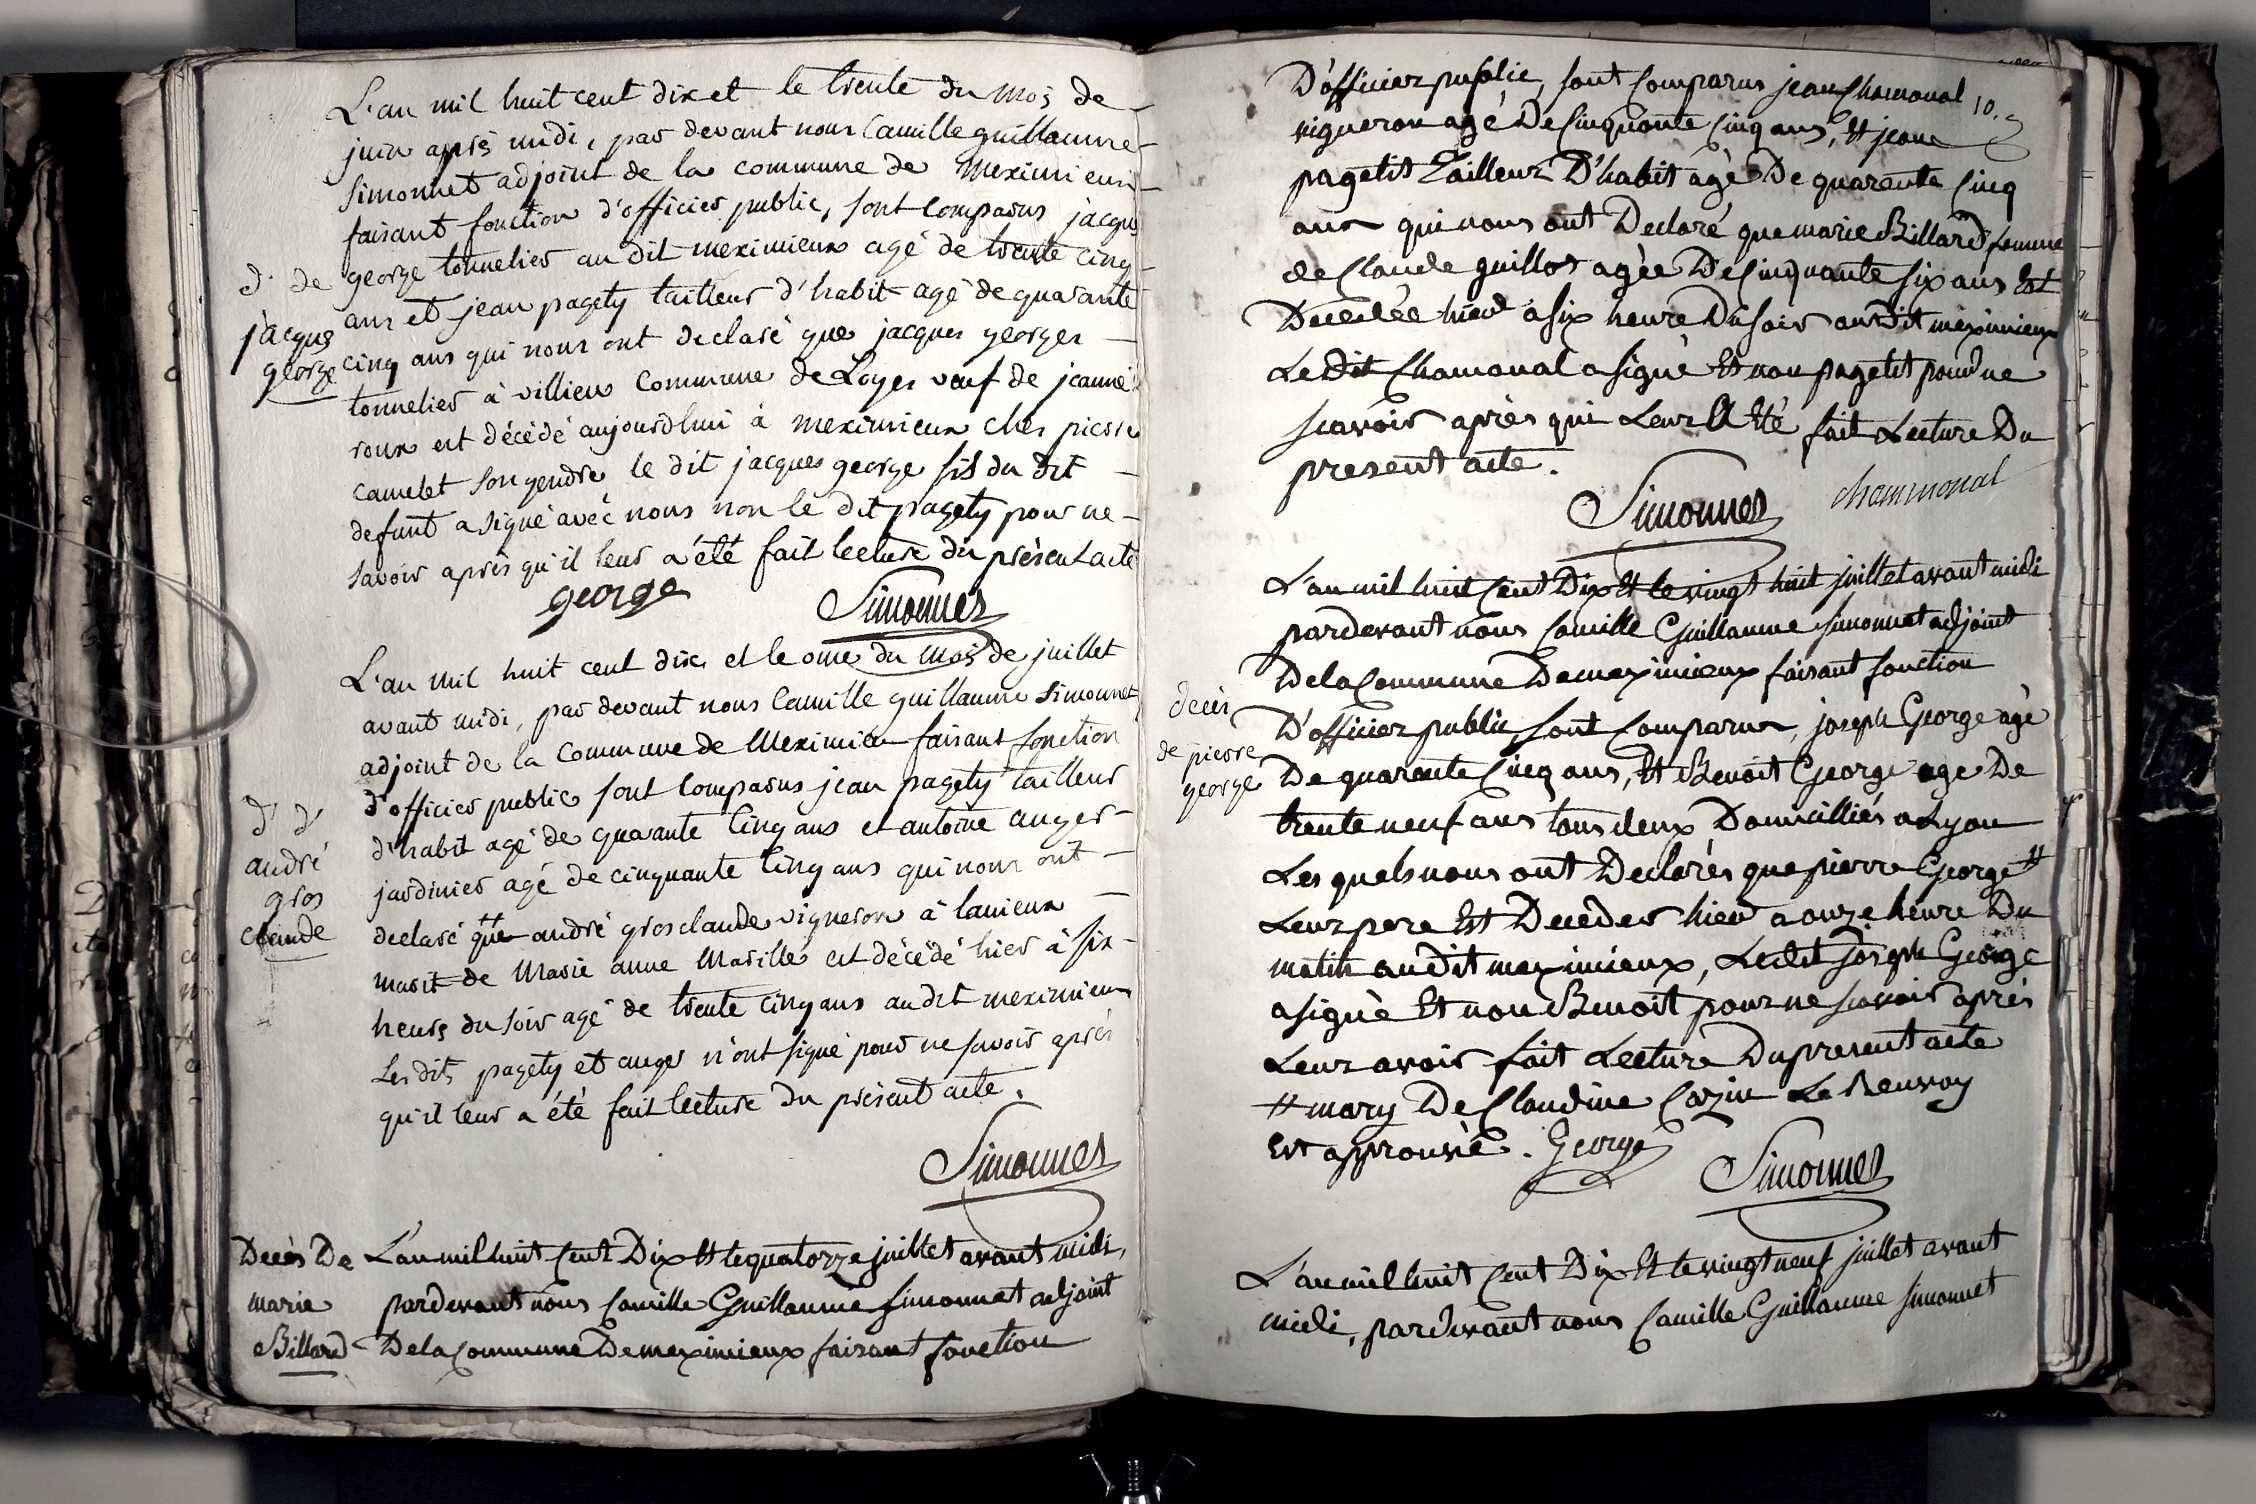 L'an mil huit cent dix et le trente du mois de
juin après midi, par devant nous Camille guillaume
simonnet adjoint de la commune de Meximieux
faisant fonction d'officier public, sont comparus jacque
d. de
jacque
george
george tonnelier au dit meximieux agé de trente cinq
ans et jean pagety tailleur d'habit agé de quarante
cinq ans qui nous ont declaré que jacques georges
tonnelier à villieu Commune de Loyes veuf de jeanne
roux est décédé aujourdhui à meximieux ches pierre
camelet son gendre le dit jacques george fils du dit
defunt a signé avec nous non le dit pagety pour ne
savoir après qu'il leur a été fait lecture du présent acte
george Simonnet
L'an mil huit cent dix et le onze du mois de juillet
avant midi, par devant nous Camille guillaume simonnet
adjoint de la commune de Meximieu faisant fonction
d'officier public sont comparus jean pagety tailleur
d. d.
andré
gros
claude
d'habit agé de quarante cinq ans et antoine auger
jardinier agé de cinquante cinq ans qui nous ont
declaré que andré grosclaude vigneron à lanieux
marit de Marie anne Marille est décédé hier à six
heure du soir agé de trente cinq ans au dit meximieux
Les dits pagety et auger n'ont signé pour ne savoir après
qu'il leur a été fait lecture du présent acte.
Simonnet
Decès De
marie
Billard
L'an mil huit Cent Dix Et le quatorze juillet avant midi,
pardevant nous Camille Guillaume simonnet adjoint
De la Commune De meximieux faisant fonction
D'officier public, sont Comparus jean Chamonal
10.
vigneron agé De Cinquante Cinq ans, Et jean
pagetit Tailleur D'habit agé De quarente Cinq
ans qui nous ont Declaré que marie Billard femme
de Claude guillot agée De Cinquante six ans Est
Decedée hier a six heure Du soir audit meximieux
Le dit Chamonal a signé Et non pagetit pour ne
scavoir après qui Leur A Eté fait Lecture Du
present acte.
Simonnet chammonal
L'an mil huit Cent Dix Et le vingt huit juillet avant midi
pardevant nous Camille Guillaume simonnet adjoint
De la Commune De meximieux faisant fonction
decès
de pierre
george
D'officier public, sont Comparus, joseph George agé
De quarente Cinq ans, Et Benoit George age De
trente neuf ans tous deux Domicilliés a Lyon
Les quels nous ont Declarés que pierre George #
Leur pere Est Decèder hier a onze heure Du
matin audit meximieux, Ledit joseph George
a signé Et non Benoit pour ne scavoir après
Leur avoir fait Lecture Du present acte
# mary De Claudine Cozin Le Renvoy
Est approuvé. George Simonnet
L'an mil huit Cent Dix Et le vingt neuf juillet avant
midi, pardevant nous Camille Guillaume simonnet